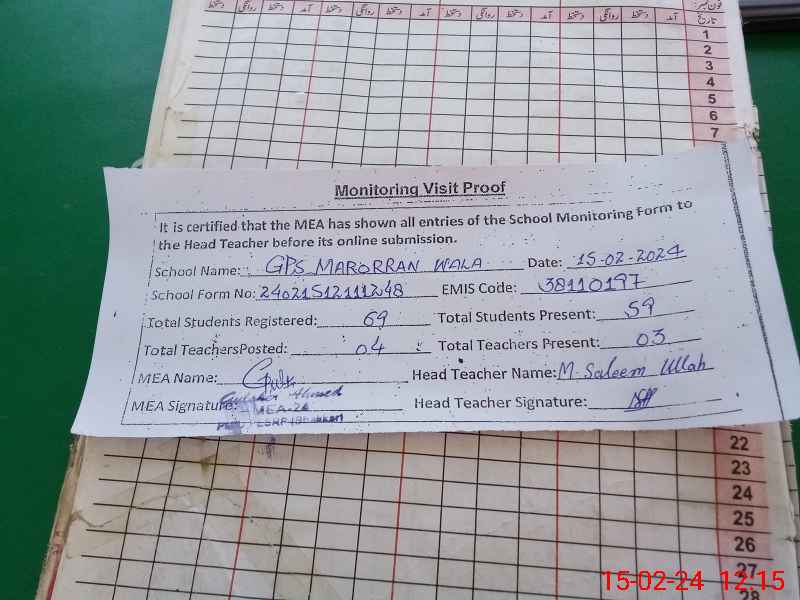 فون نمبر:
تاریخ آمد دستخط روانگی دستخط آمد دستخط روانگی دستخط آمد دستخط روانگی دستخط آمد دستخط روانگی دستخط
1
2
3
4
5
6
7
Monitoring Visit Proof
It is certified that the MEA has shown all entries of the School Monitoring Form to
the Head Teacher before its online submission.
School Name: GPS MARORRAN WALA Date: 15-02-2024
School Form No: 24021512111248 EMIS Code: 38110197
Total Students Registered: 69 Total Students Present: 59
Total TeachersPosted: 04 Total Teachers Present: 03
MEA Name: Head Teacher Name: M. Saleem Ullah
MEA Signature: Ahmed Head Teacher Signature:
MEA-24
22
23
24
25
26
27
28
15-02-24 12:15